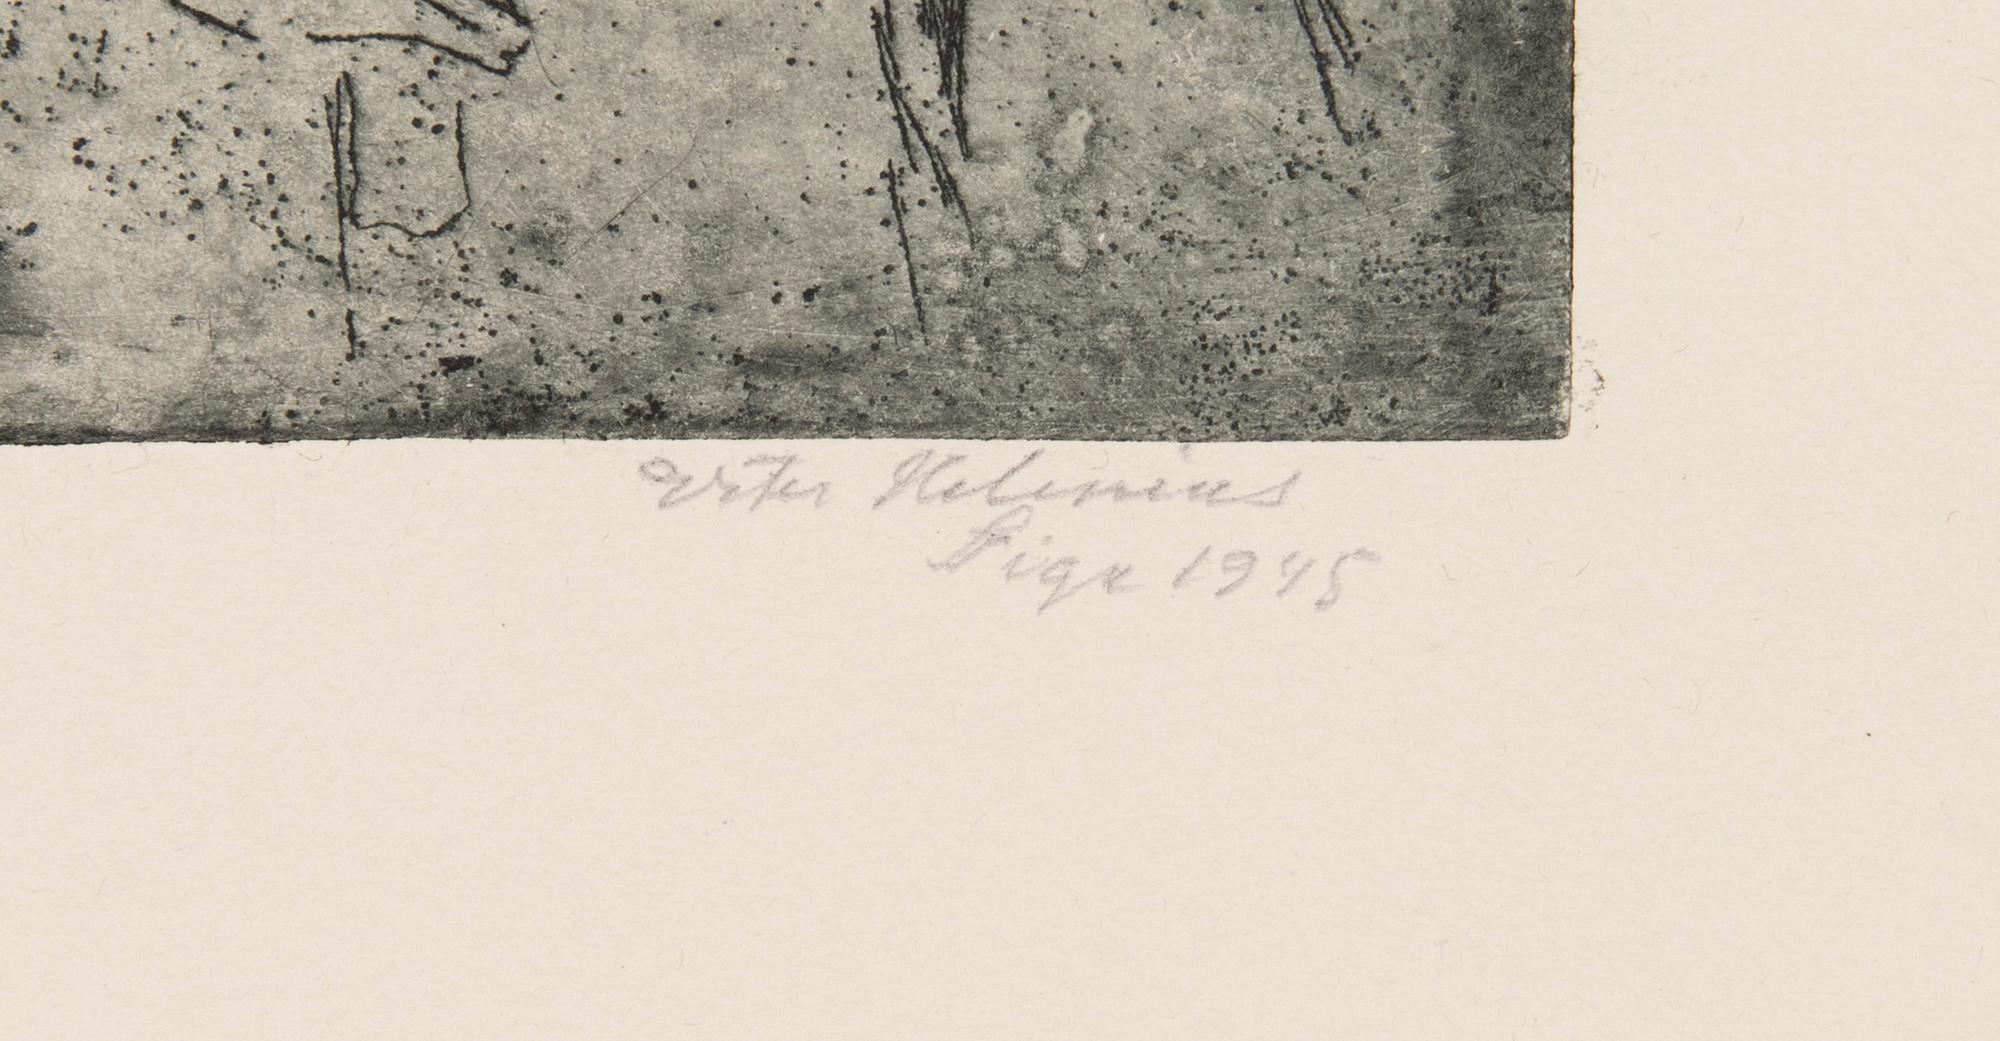 Ester Helenius
Siga 1945